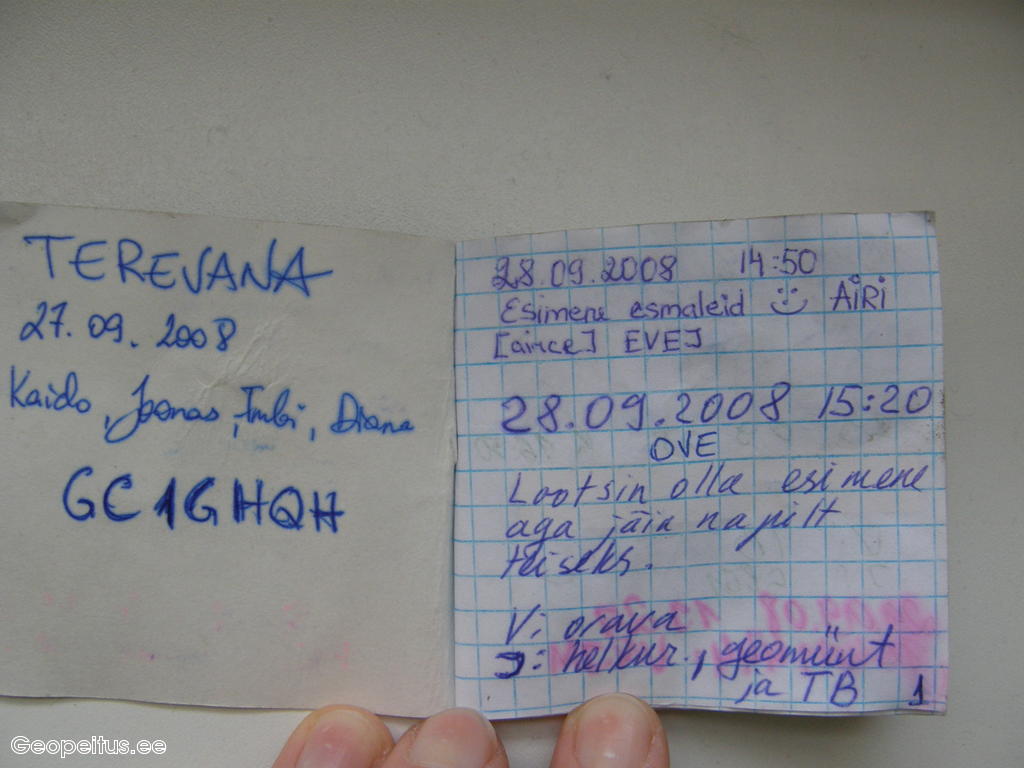 TEREVANA
27.09.2008
Kaido, Joonas, Imbi, Diana
GC1GHQH
28.09.2008 14:50
Esimene esmaleid AIRI
[airce] EVE]
28.09.2008 15:20
OVE
Lootsin olla esimene
aga jäin napilt
teiseks.
V: orava
J: helkur, geomünt
ja TB 1
Geopeitus.ee